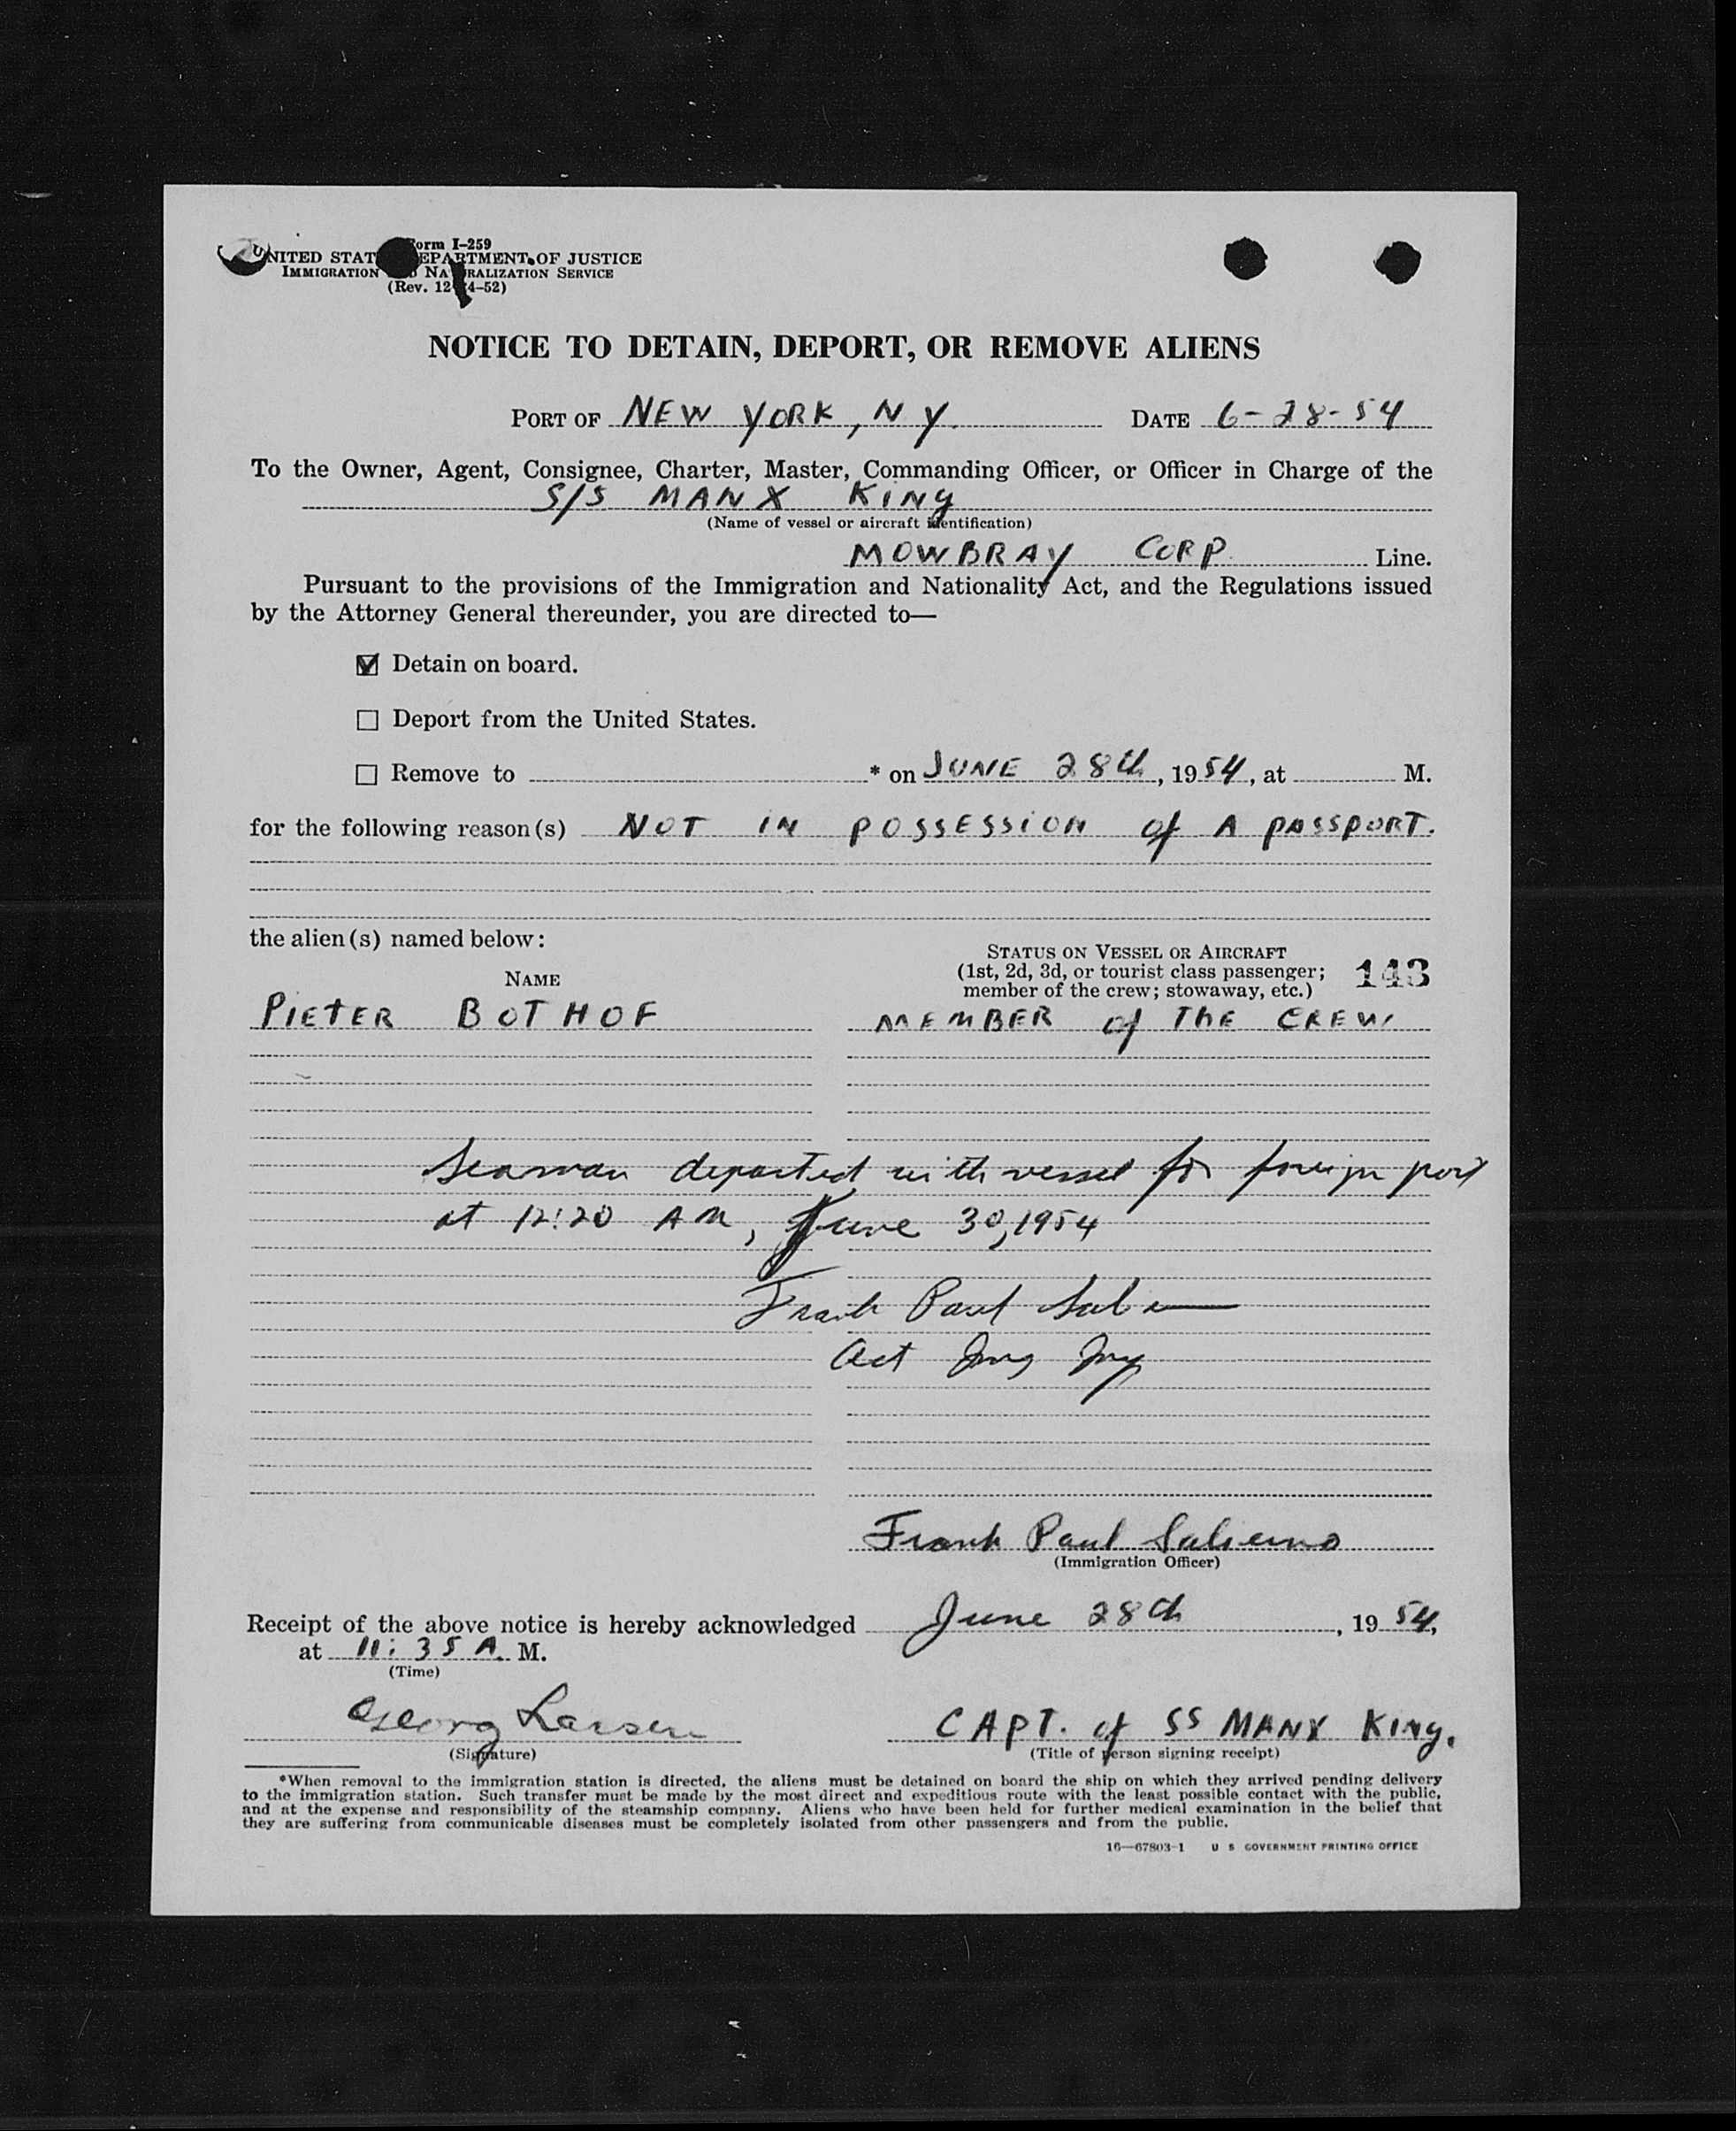 Form I-259
UNITED STATES DEPARTMENT OF JUSTICE
IMMIGRATION AND NATURALIZATION SERVICE
(Rev. 12-24-52)
NOTICE TO DETAIN, DEPORT, OR REMOVE ALIENS
PORT OF NEW YORK, N Y. DATE 6-28-54
To the Owner, Agent, Consignee, Charter, Master, Commanding Officer, or Officer in Charge of the
S/S MANX KING
(Name of vessel or aircraft identification)
MOWBRAY CORP. Line.
Pursuant to the provisions of the Immigration and Nationality Act, and the Regulations issued
by the Attorney General thereunder, you are directed to—
☑ Detain on board.
☐ Deport from the United States.
☐ Remove to * on JUNE 28th, 1954, at M.
for the following reason(s) NOT IN POSSESSION of A PASSPORT.
the alien(s) named below:
STATUS ON VESSEL OR AIRCRAFT
(1st, 2d, 3d, or tourist class passenger;
member of the crew; stowaway, etc.)
143
NAME
PIETER BOTHOF MEMBER of THE CREW
Seaman departed with vessel for foreign port
at 12:20 AM, June 30, 1954
Frank Paul
Act Img Insp
Frank Paul Salierno
(Immigration Officer)
Receipt of the above notice is hereby acknowledged June 28th, 1954,
at 11:35 A. M.
(Time)
Georg Larsen CAPT. of SS MANX KING.
(Signature) (Title of person signing receipt)
*When removal to the immigration station is directed, the aliens must be detained on board the ship on which they arrived pending delivery
to the immigration station. Such transfer must be made by the most direct and expeditious route with the least possible contact with the public,
and at the expense and responsibility of the steamship company. Aliens who have been held for further medical examination in the belief that
they are suffering from communicable diseases must be completely isolated from other passengers and from the public.
16—67803-1 U S GOVERNMENT PRINTING OFFICE